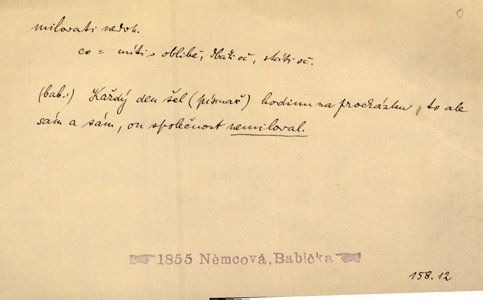 milovati nedok.
co = míti v oblibě, dbáti oč, státi oč.
(bab.) Každý den šel (písmař) hodinu na procházku, to ale
sám a sám, on společnost nemiloval.
1855 Němcová, Babička
158.12